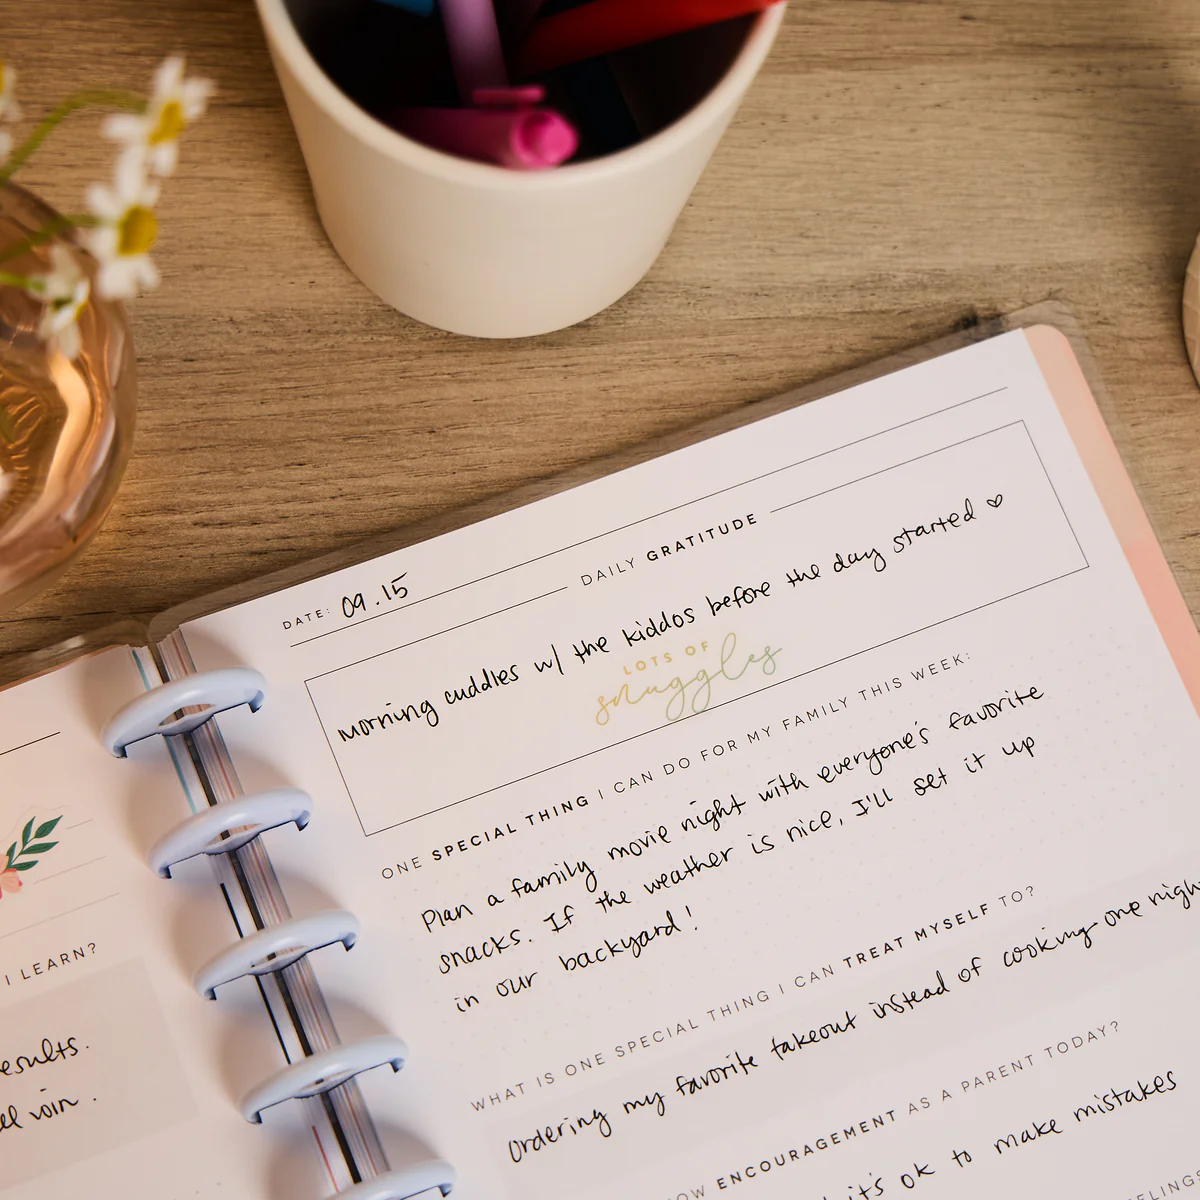 I LEARN?
results.
DATE: 09.15
DAILY GRATITUDE
morning cuddles w/ the kiddos before the day started ♡
LOTS OF
snuggles
ONE SPECIAL THING I CAN DO FOR MY FAMILY THIS WEEK:
Plan a family movie night with everyone's favorite
snacks. If the weather is nice, I'll set it up
in our backyard!
WHAT IS ONE SPECIAL THING I CAN TREAT MYSELF TO?
Ordering my favorite takeout instead of cooking one night
ENCOURAGEMENT AS A PARENT TODAY?
it's ok to make mistakes